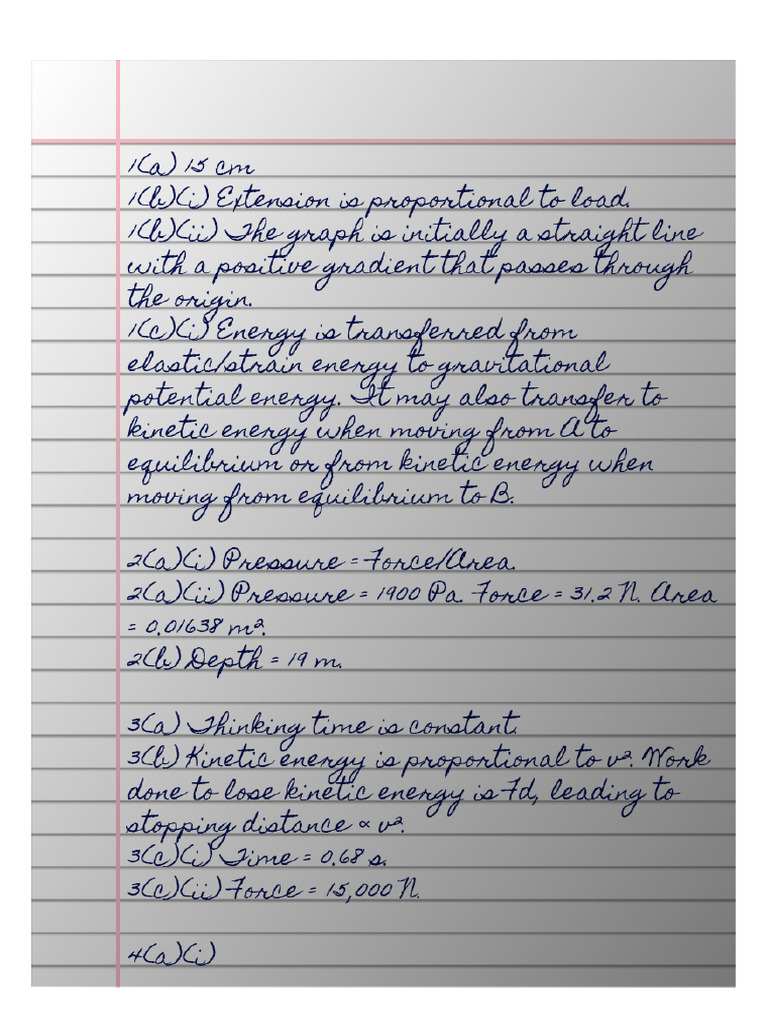 1(a) 15 cm
1(b)(i) Extension is proportional to load.
1(b)(ii) The graph is initially a straight line
with a positive gradient that passes through
the origin.
1(c)(i) Energy is transferred from
elastic/strain energy to gravitational
potential energy. It may also transfer to
kinetic energy when moving from A to
equilibrium or from kinetic energy when
moving from equilibrium to B.
2(a)(i) Pressure = Force/Area.
2(a)(ii) Pressure = 1900 Pa. Force = 31.2 N. Area
= 0.01638 m².
2(b) Depth = 19 m.
3(a) Thinking time is constant.
3(b) Kinetic energy is proportional to v². Work
done to lose kinetic energy is Fd, leading to
stopping distance ∝ v².
3(c)(i) Time = 0.68 s.
3(c)(ii) Force = 15,000 N.
4(a)(i)